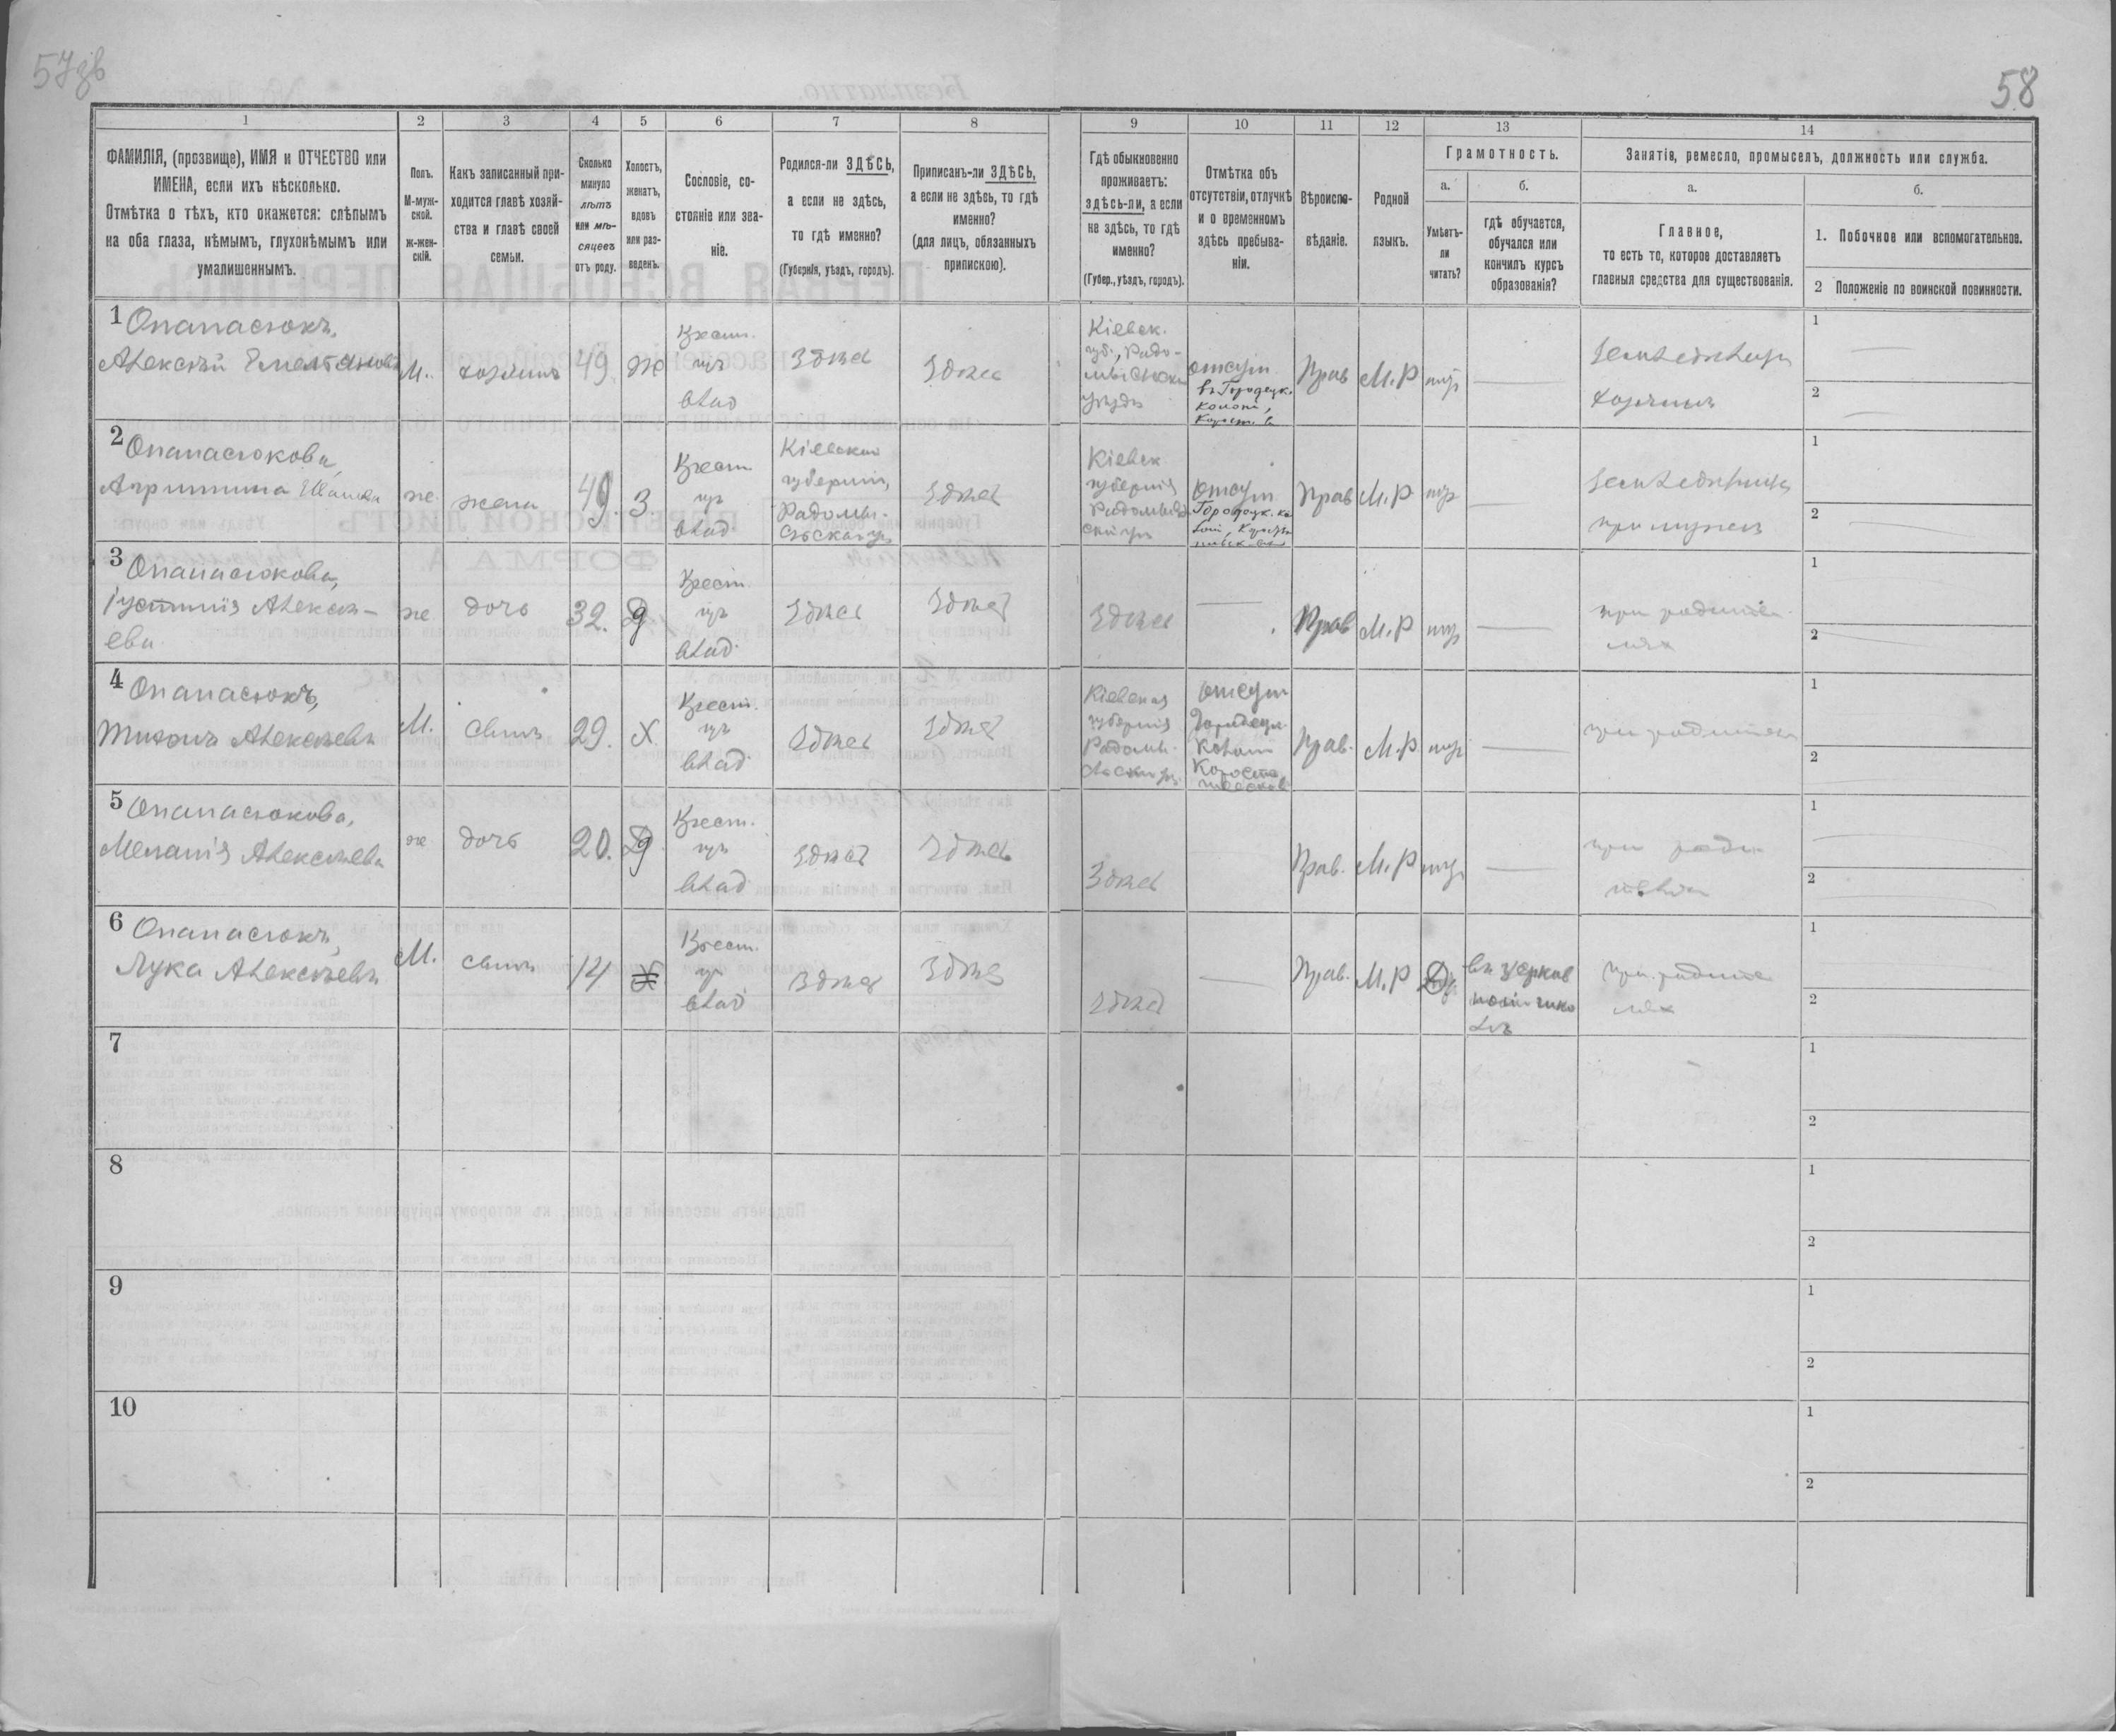 57зв
58
1
2
3
4
5
6
7
8
9
10
11
12
13
14
ФАМИЛІЯ, (прозвище), ИМЯ и ОТЧЕСТВО или
ИМЕНА, если ихъ нѣсколько.
Отмѣтка о тѣхъ, кто окажется: слѣпымъ
на оба глаза, нѣмымъ, глухонѣмымъ или
умалишеннымъ.
Полъ.
М-муж-
ской.
ж-жен-
скій.
Какъ записанный при-
ходится главѣ хозяй-
ства и главѣ своей
семьи.
Сколько
минуло
лѣтъ
или мѣ-
сяцевъ
отъ роду.
Холостъ,
женатъ,
вдовъ
или раз-
веденъ.
Сословіе, со-
стояніе или зва-
ніе.
Родился-ли ЗДѢСЬ,
а если не здѣсь,
то гдѣ именно?
(Губернія, уѣздъ, городъ).
Приписанъ-ли ЗДѢСЬ,
а если не здѣсь, то гдѣ
именно?
(для лицъ, обязанныхъ
припискою).
Гдѣ обыкновенно
проживаетъ:
здѣсь-ли, а если
не здѣсь, то гдѣ
именно?
(Губер., уѣздъ, городъ).
Отмѣтка объ
отсутствіи, отлучкѣ
и о временномъ
здѣсь пребыва-
ніи.
Вѣроиспо-
вѣданіе.
Родной
языкъ.
Грамотность.
а.
б.
Умѣетъ-
ли
читать?
гдѣ обучается,
обучался или
кончилъ курсъ
образованія?
Занятія, ремесло, промыселъ, должность или служба.
а.
б.
Главное,
то есть то, которое доставляетъ
главныя средства для существованія.
1. Побочное или вспомогательное.
2 Положеніе по воинской повинности.
1 Опанасюкъ,
Алексѣй Емельяновъ
М.
хозяинъ
49
ж
Крест.
изъ
влад
Здѣсь
Здѣсь
Кіевск.
губ., Радо-
мысльскій
уѣздъ
отсут
въ Городецк.
Прав
М.Р
нѣт
—
земледѣлецъ
хозяинъ
1 —
2 —
2 Опанасюкова,
же
жена
49.
З.
Крест
изъ
влад.
Кіевская
губернія,
Радомы-
сльскаго
Здѣсь
Кіевск
губернія
отсут
Прав
М.Р
нѣт
—
при мужѣ
1
2 —
3 Опанасюкова,
Іустинія Алексѣ-
ева
же
дочь
32.
Д
Крест
изъ
влад.
Здѣсь
Здѣсь
Здѣсь
—
Прав
М.Р
нѣт
—
при родите-
ляхъ
1
2
4 Опанасюкъ,
Тихонъ Алексѣевъ
М.
сынъ
29.
Х
Крест.
изъ
влад
Здѣсь
Здѣсь
Кіевская
губернія
отсут
Прав.
М.Р
нѣт
—
при родителях
1
2
5 Опанасюкова,
Меланія Алексѣева
же
дочь
20.
Д
Крест.
изъ
влад
Здѣсь
Здѣсь
Здѣсь
Прав.
М.Р
нѣт
—
при роди-
теляхъ
1
2
6 Опанасюкъ,
Лука Алексѣевъ
М.
сынъ
14
Х
Крест.
изъ
влад
Здѣсь
Здѣсь
Здѣсь
—
Прав.
М.Р
въ церков
ной шко
лѣ
при родите
ляхъ
1
2
7
1
2
8
1
2
9
1
2
10
1
2